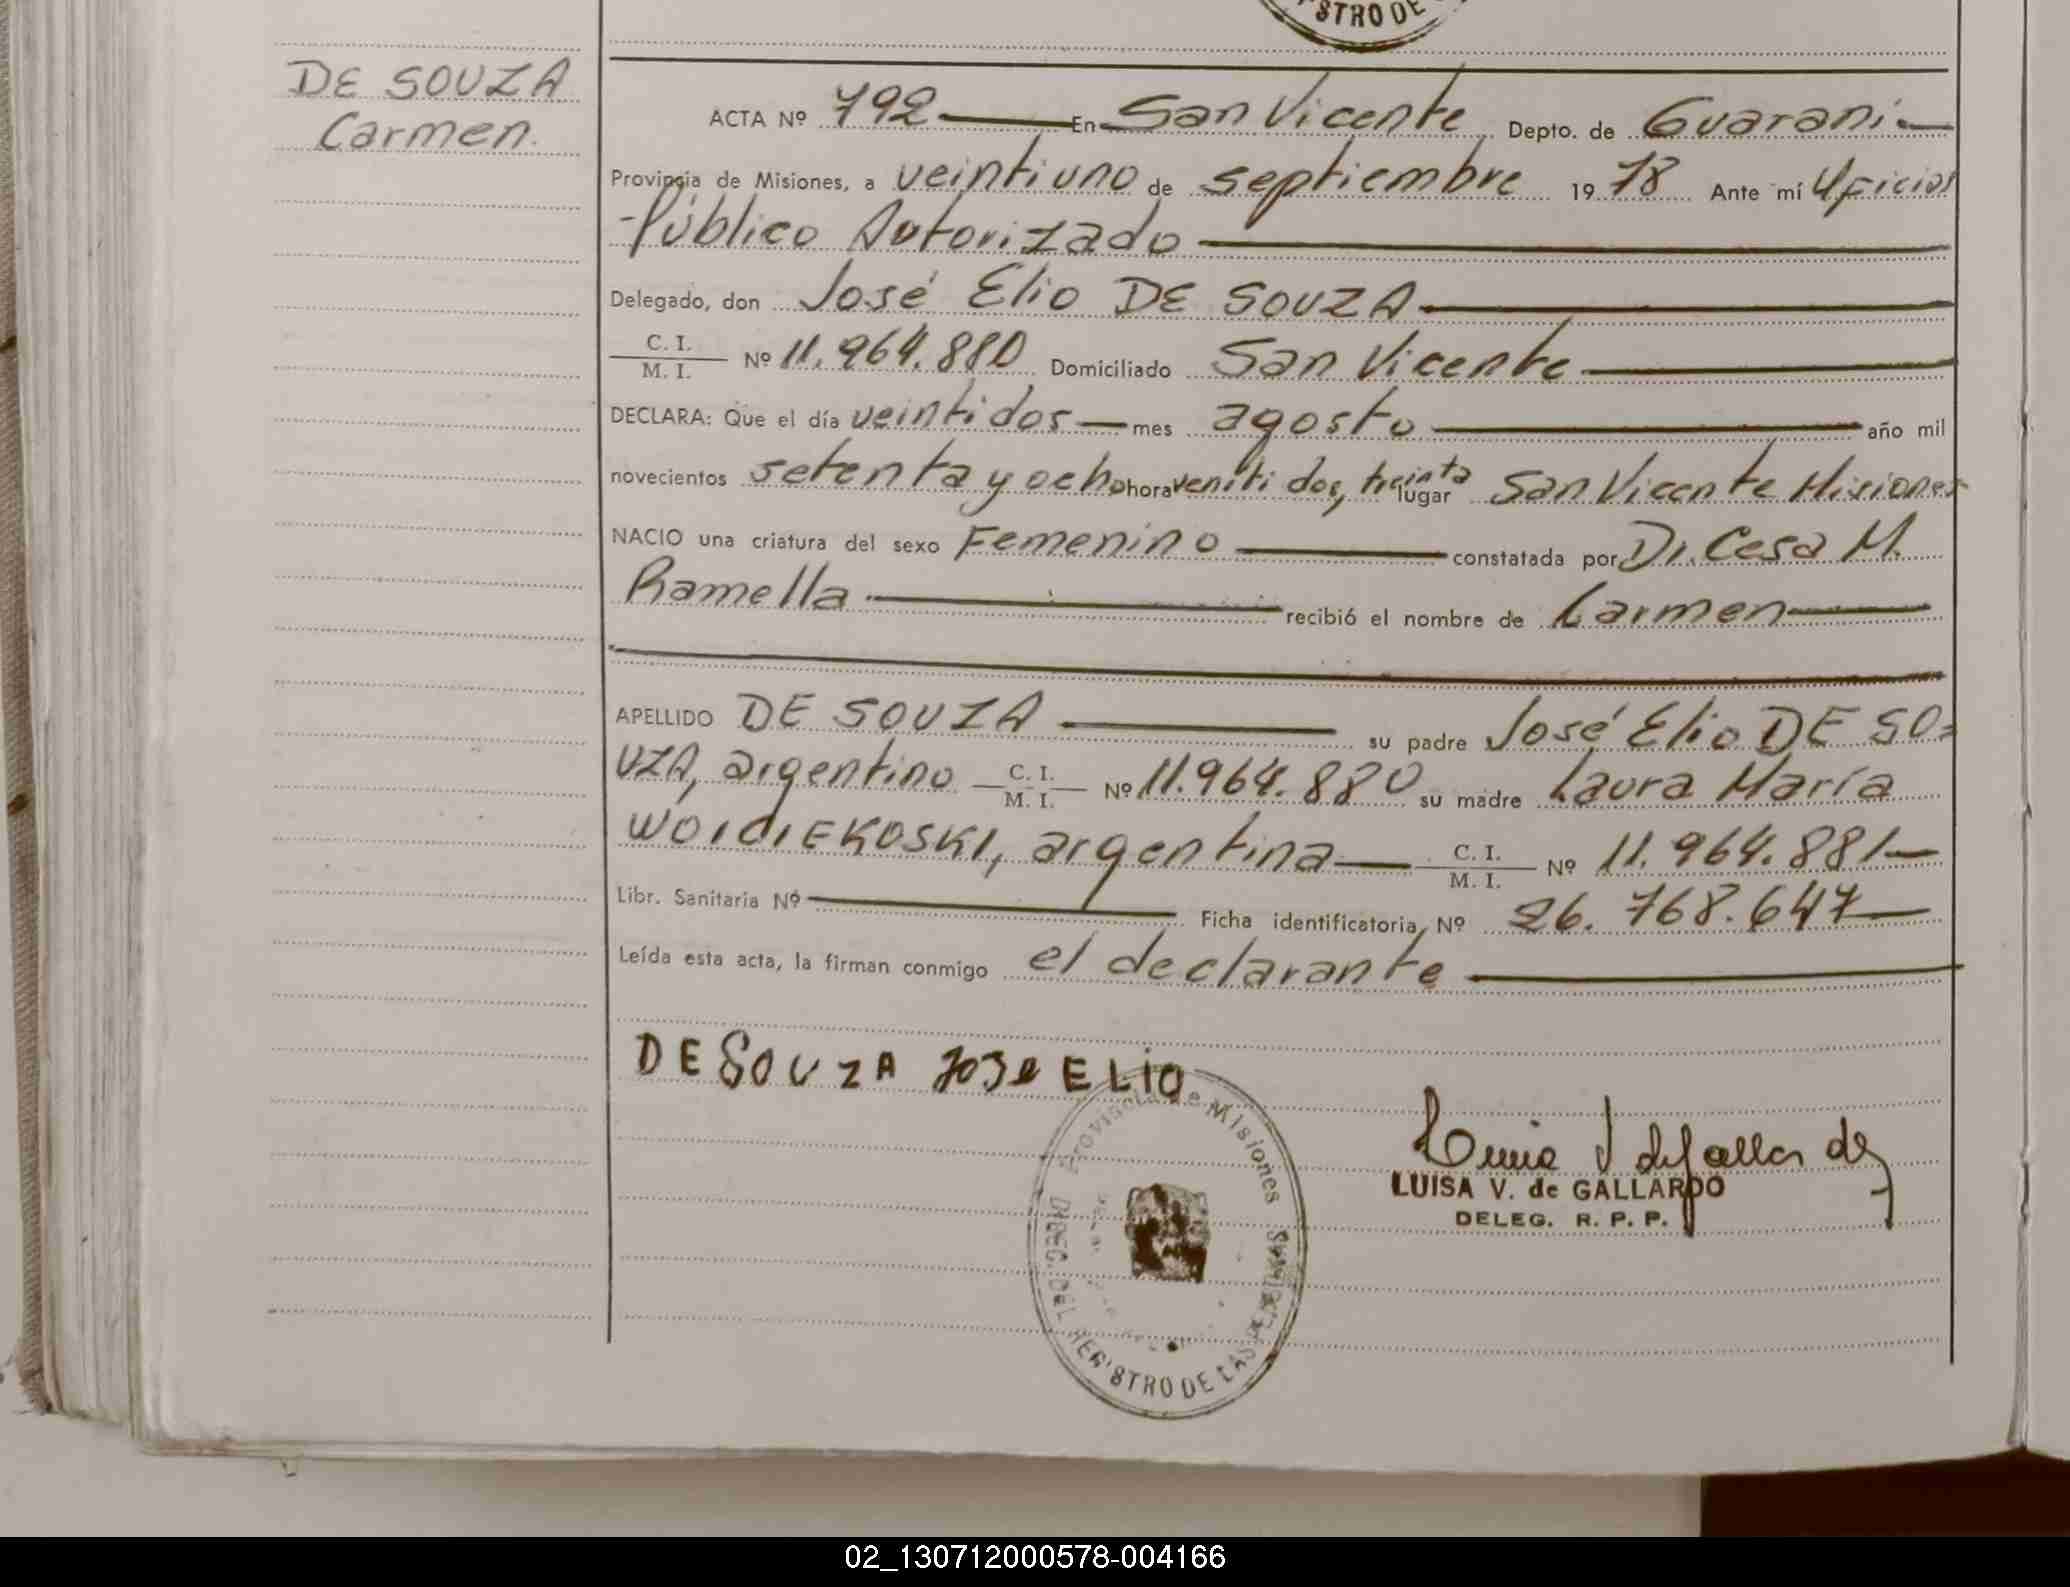 STRO DE
DE SOUZA
Carmen.
ACTA Nº 792 En San Vicente Depto. de Guaraní
Provincia de Misiones, a veintiuno de septiembre 1978 Ante mí Oficial
Público Autorizado
Delegado, don José Elio DE SOUZA
C. I.
M. I. Nº 11.964.880 Domiciliado San Vicente
DECLARA: Que el día veintidos mes agosto año mil
novecientos setenta y ocho hora veniti dos, treinta lugar San Vicente Misiones
NACIO una criatura del sexo Femenino constatada por Dr. Cesa M.
Ramella recibió el nombre de Carmen
APELLIDO DE SOUZA su padre José Elio DE SO=
UZA, argentino C. I.
M. I. Nº 11.964.880 su madre Laura María
WOICIEKOSKI, argentina C. I.
M. I. Nº 11.964.881
Libr. Sanitaria Nº Ficha identificatoria Nº 26.768.647
Leída esta acta, la firman conmigo el declarante
DE SOUZA JOSE ELIO
Provincia de Misiones
DIREC. DEL REGISTRO DE LAS PERSONAS
LUISA V. de GALLARDO
DELEG. R. P. P.
02_130712000578-004166